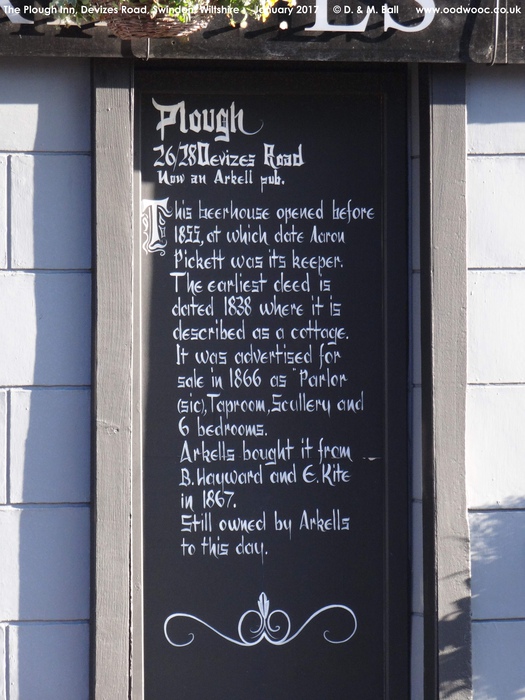 The Plough Inn, Devizes Road, Swindon, Wiltshire - January 2017 © D. & M. Ball www.oodwooc.co.uk
LES
Plough
26/28 Devizes Road
Now an Arkell pub.
This beerhouse opened before
1855, at which date Aaron
Pickett was its keeper.
The earliest deed is
dated 1838 where it is
described as a cottage.
It was advertised for
sale in 1866 as "Parlor
(sic), Taproom, Scullery and
6 bedrooms.
Arkells bought it from
B. Hayward and E. Kite
in 1867.
Still owned by Arkells
to this day.